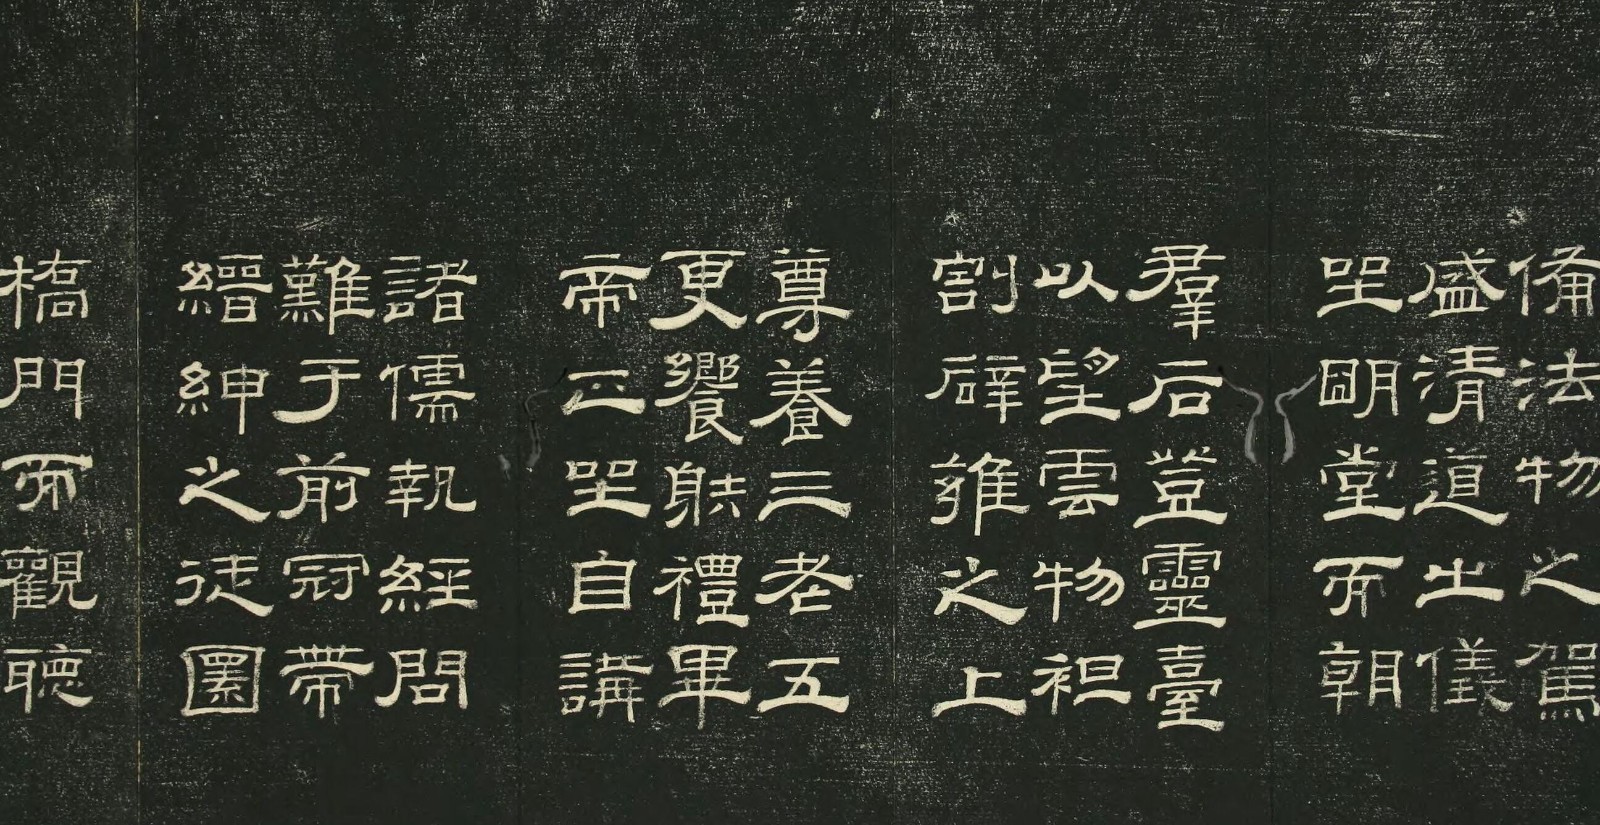 備法物之駕
盛清道之儀
坐明堂而朝
羣后登靈臺
以望雲物袒
割辟雍之上
尊養三老五
更饗射禮畢
帝正坐自講
諸儒執經問
難于前冠帶
縉紳之徒圜
橋門而觀聽